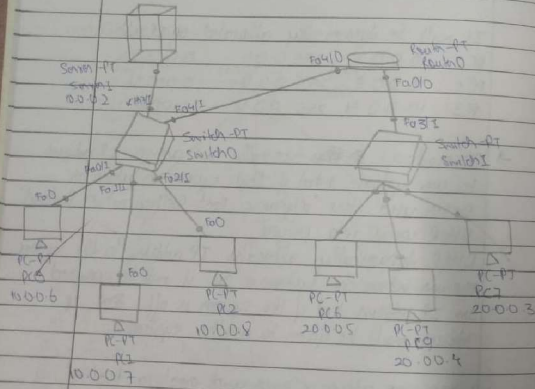 Server-PT
Server1
10.0.0.2
Fa4/0
Router-PT
Router0
Fa0/0
Fa4/1
Switch-PT
Switch0
Fa3/1
Switch-PT
Switch1
Fa0/1
Fa1/1
Fa2/1
Fa0
PC-PT
10.0.0.6
Fa0
PC-PT
PC1
10.0.0.7
Fa0
PC-PT
PC2
10.0.0.8
PC-PT
20.0.0.5
PC-PT
20.0.0.4
PC-PT
20.0.0.3